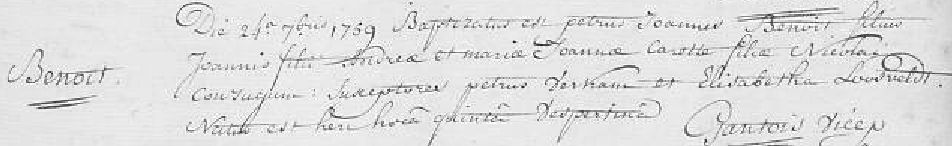 Die 24a 7bris 1769 Baptizatus est petrus Joannes Benoit filius
Benoit. Joannis filii Andreæ et mariæ Joannæ Carotte filiæ Nicolai
conjugum: Susceptores petrus et Elisabetha
Natus est heri horâ quintâ Vespertinâ
Gantois Vicep